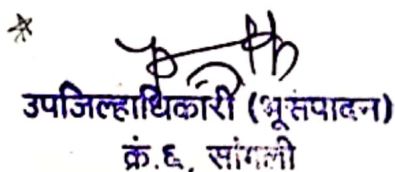 उपजिल्हाधिकारी (भूसंपादन)
क्रं.६, सांगली